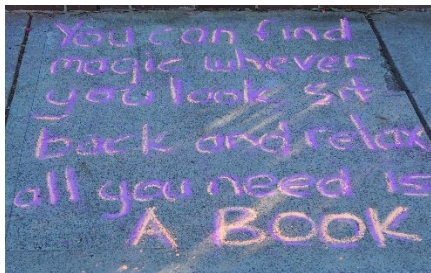 You can find
magic whever
you look. sit
back and relax
all you need is
A BOOK